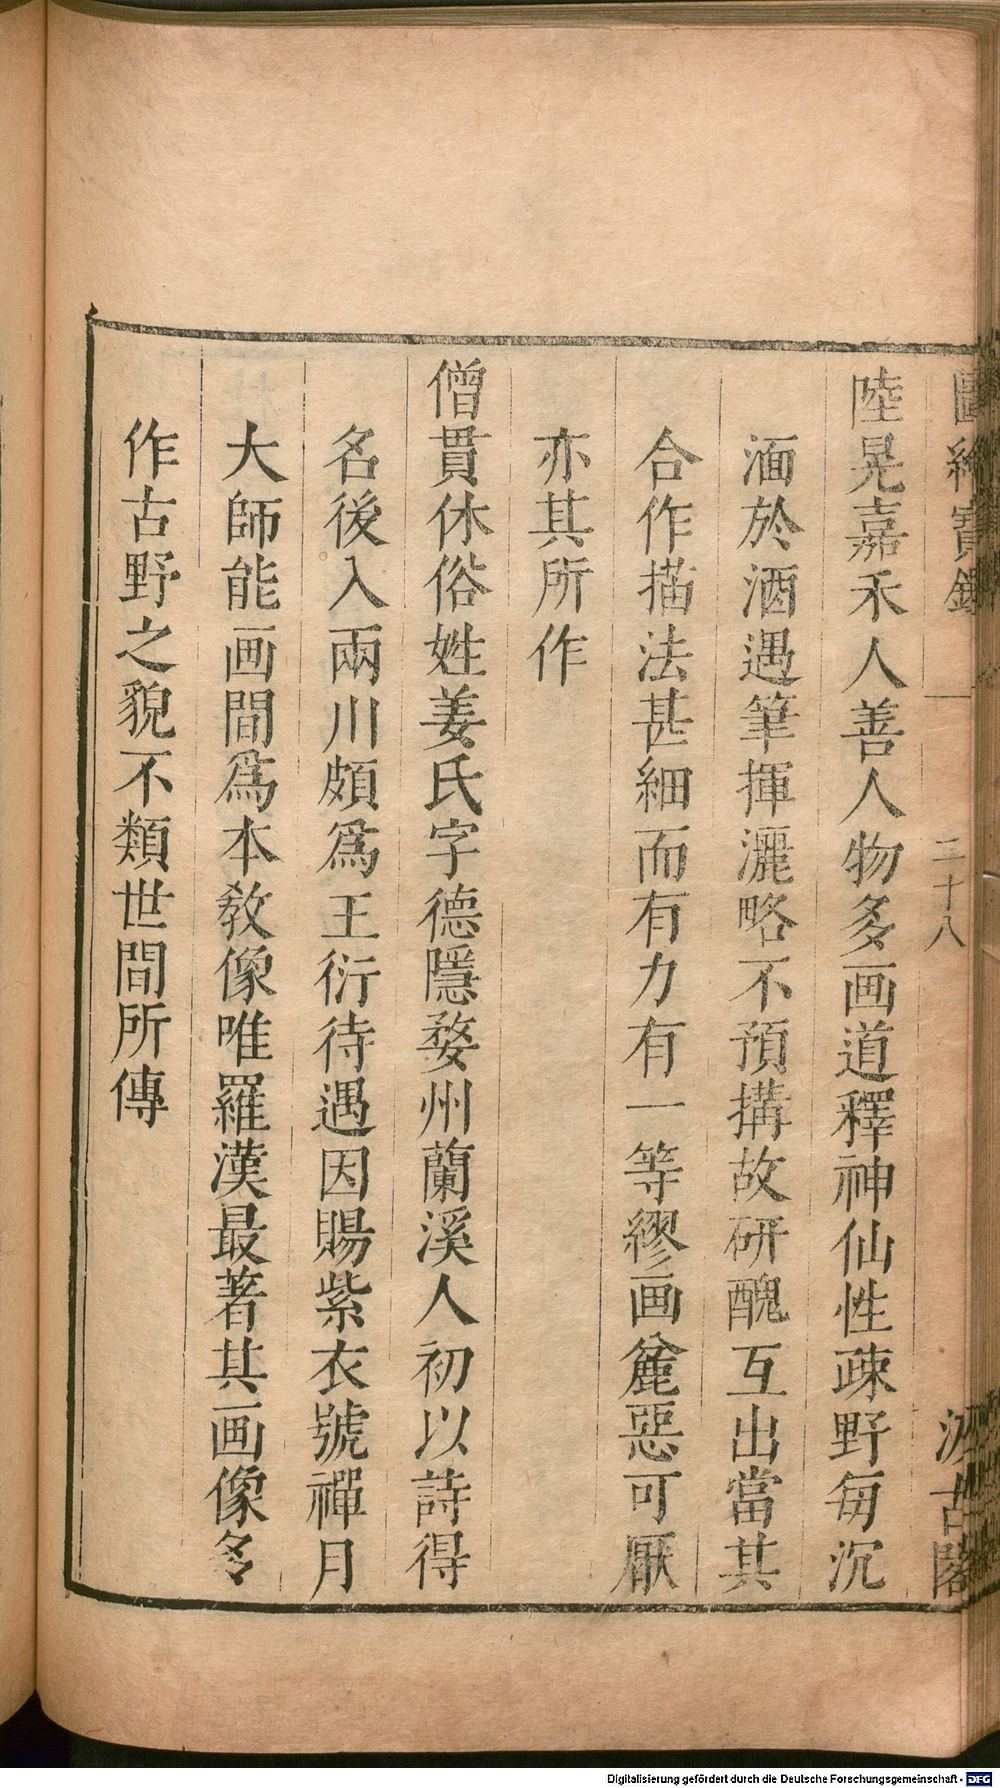 圖繪寶鑑
二十八
汲古閣
陸晃嘉禾人善人物多画道釋神仙性疎野每沉
湎於酒遇筆揮灑略不預搆故研醜互出當其
合作描法甚細而有力有一等繆画麄惡可厭
亦其所作
僧貫休俗姓姜氏字德隱婺州蘭溪人初以詩得
名後入兩川頗爲王衍待遇因賜紫衣號禪月
大師能画間爲本敎像唯羅漢最著其画像多
作古野之貌不類世間所傳
Digitalisierung gefördert durch die Deutsche Forschungsgemeinschaft - DFG